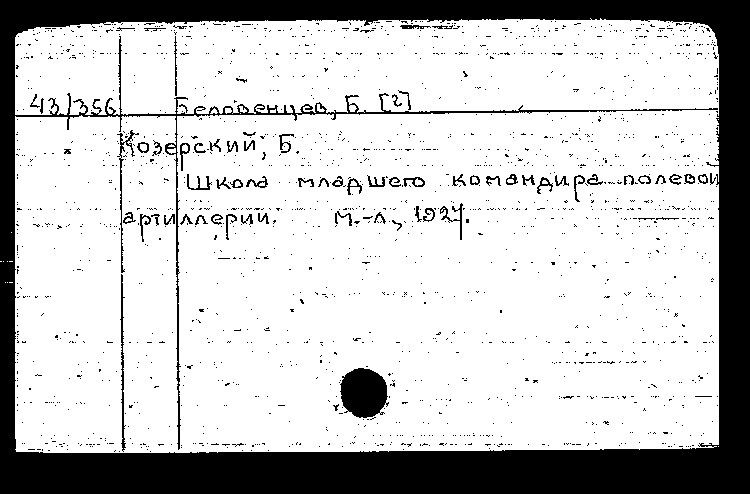 43/356 Беловенцев, Б. [2]
Козерский, Б.
Школа младшего командира полевой
артиллерии. М.-Л., 1927.